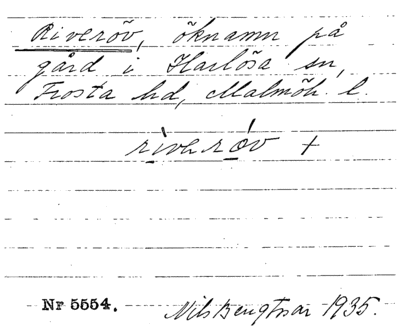 Riveröv, öknamn på
gård i Harlösa sn,
Frosta hd, Malmöh. l.
rìve rö́v +
Nr 5554.
Nils Bengtsson 1935.